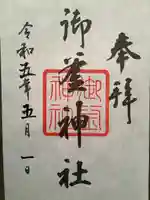 奉拝
御釜神社
令和五年五月一日